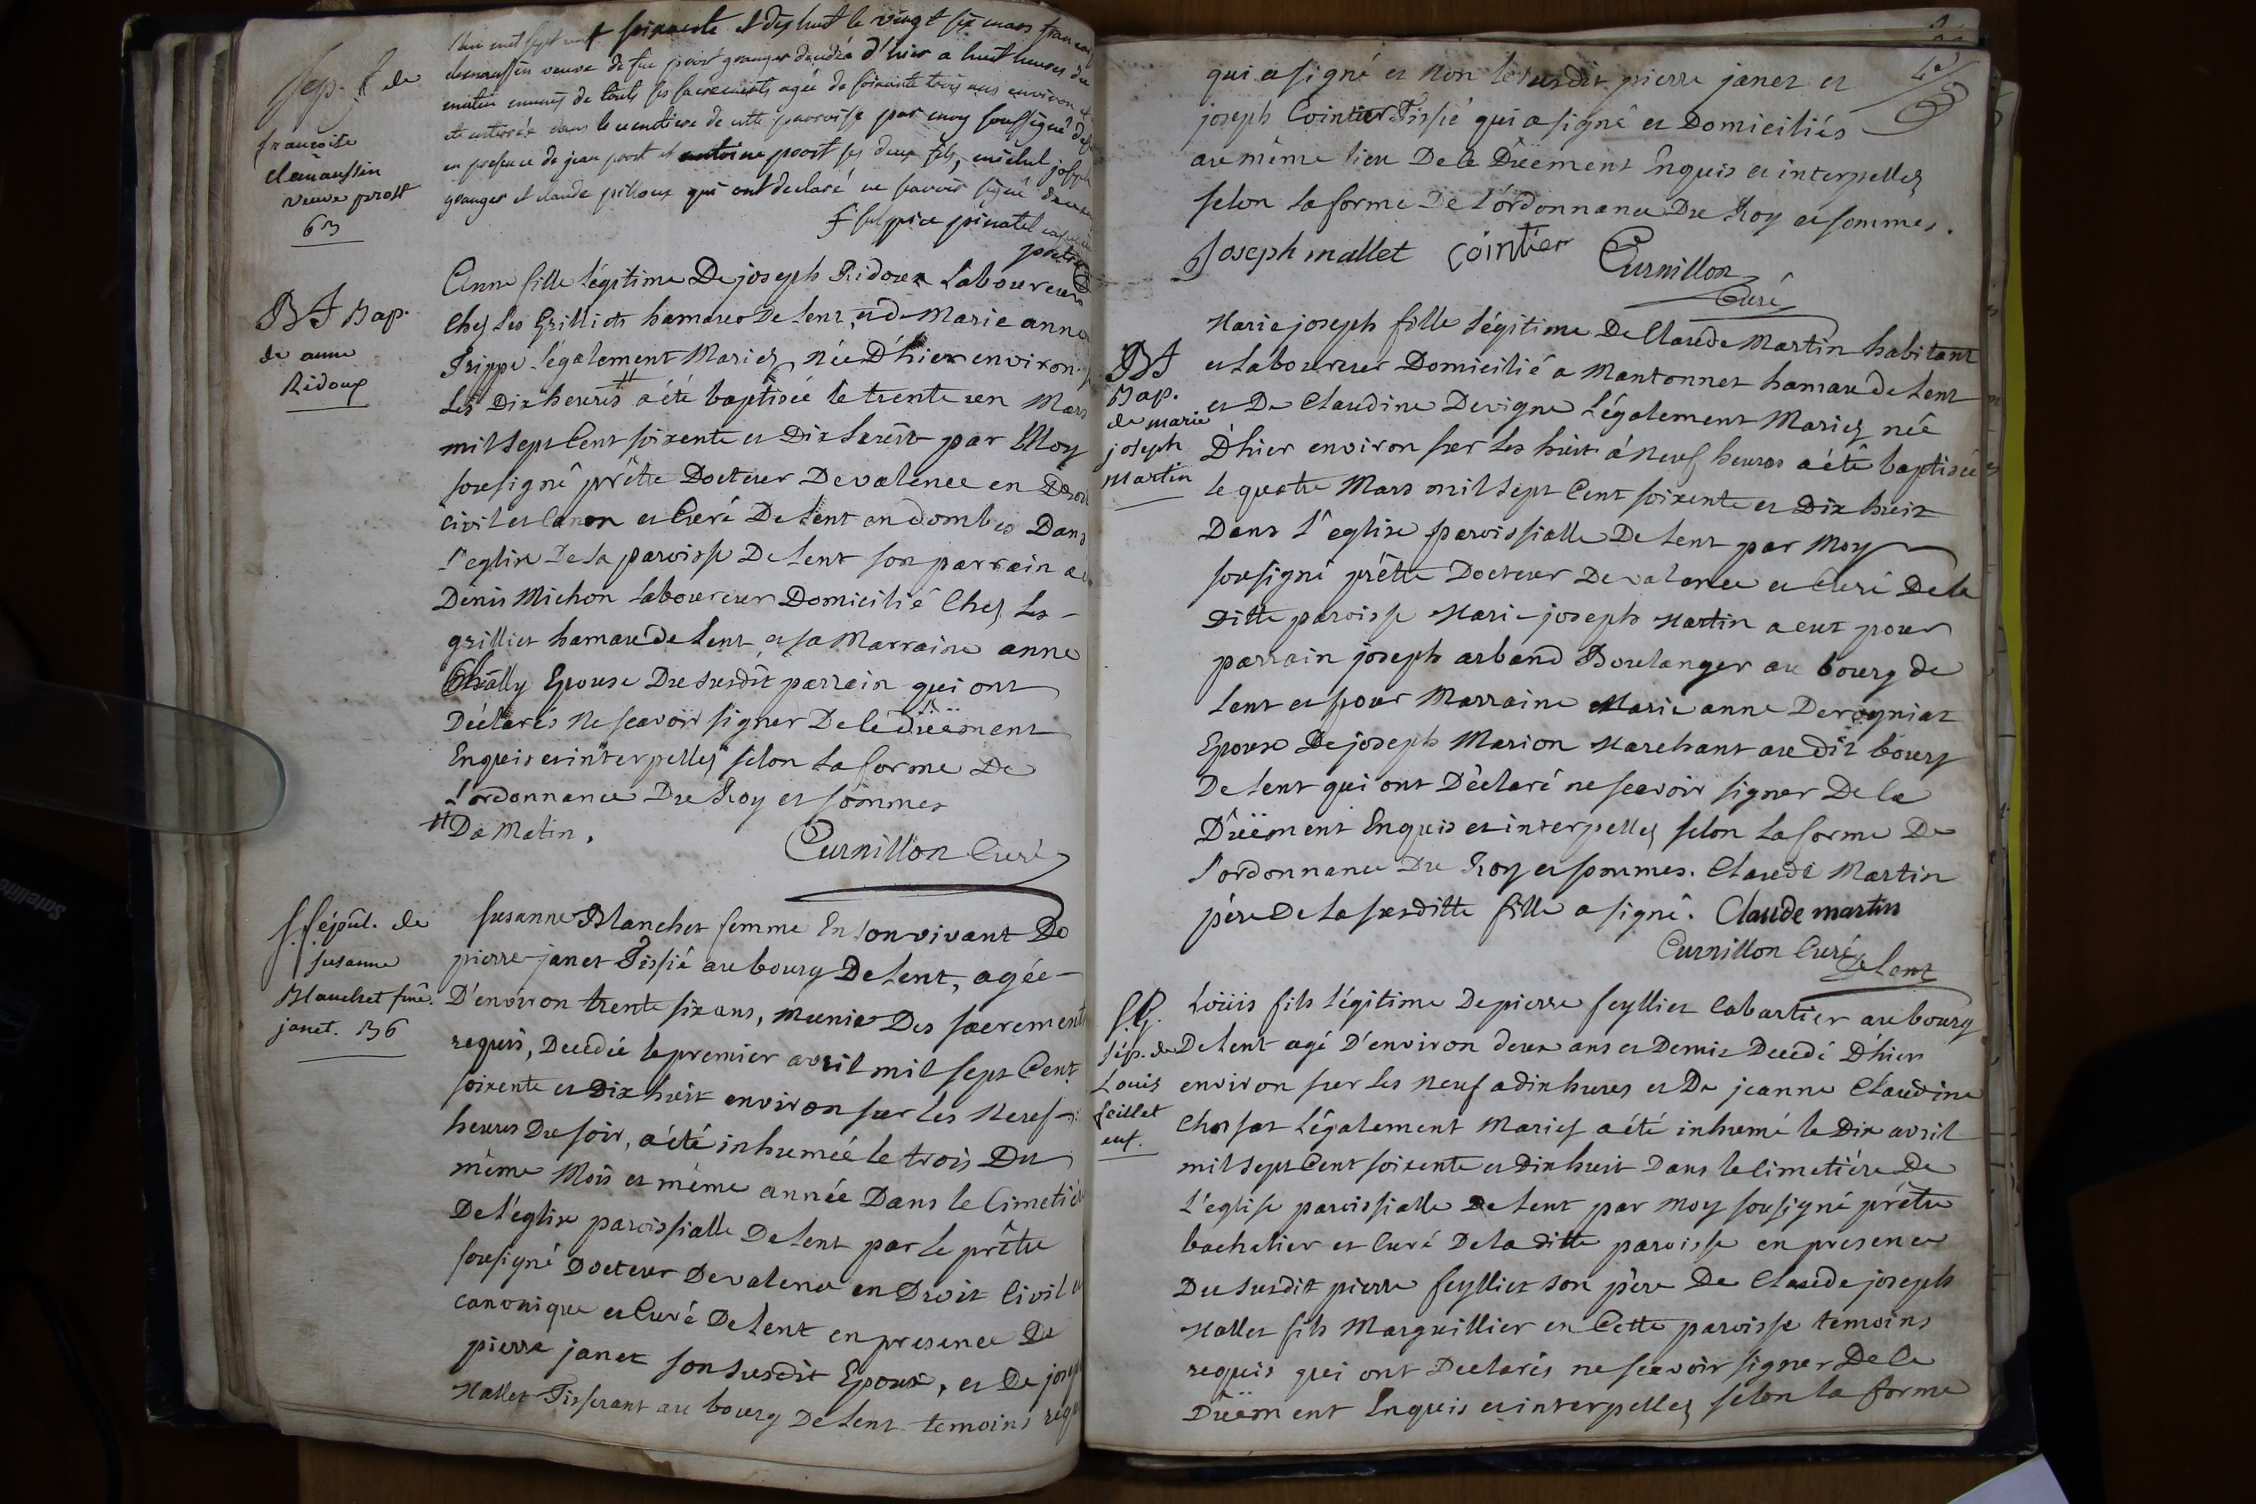 Sep. f de
francoise
clemaussin
veuve prost
63
l'an mil sept cent soixante et dix huit le vingt six mars francoise
clemaussin veuve de feu pierre granger decedée d'hier a huit heures du
matin munis de touts ses sacrements agée de soixante trois ans environ
ete enterrée dans le cimetiere de cette parroisse par moy soussigné
en presence de jean prost et antoine prost ses deux fils, michel joseph
granger et claude pilloux qui ont declaré ne savoir signé de ce
f sulpice pinatel
pretre
BJ Bap.
de anne
Ridoux
Anne fille légitime De joseph Ridoux Laboureur
chez les Grilliets hamaux de Lent, et de Marie anne
Trippe légalement Mariez, née D'hier environ
Les Dix heures # a été baptisée le trente un Mars
mil sept Cent soixente et Dix huit par Moy
sousigné prêtre Docteur De valence en Droit
civil et Canon et Curé De Lent en dombes Dans
l'eglise De la paroisse De Lent son parrain a
Denis Michon Laboureur Domicilié Chez Les
grilliet hamau de Lent, et sa Marraine anne
Epouse Du susdit parrain qui ont
Déclarés Ne scavoir signer De le Düëment
Enquis et interpellez selon la forme De
l'ordonnance Du Roy et sommes
# Du Matin.
Curnillon Curé
S. Sépul. de
susanne
Blanchet fme.
janet. 36
susanne Blanchet femme En son vivant De
pierre janet Tissié au bourg De Lent, agée
D'environ trente six ans, munie Des sacrements
requis, Decedée le premier avril mil sept Cent
soixente et Dix huit environ sur les Neuf
heures Du soir, a été inhumée le trois Du
même Mois et même année Dans le Cimetiére
De l'église paroissialle De Lent par le prêtre
sousigné Docteur De valence en Droit Civil et
canonique et Curé De Lent en presence De
pierre janet son susdit Epoux, et De joseph
Mallet Tisserant au bourg De Lent temoins requis
qui a signé et Non le susdit pierre janet et
joseph Cointier Tissié qui a signé et Domiciliés
au même lieu De le Düëment Enquis et interpellez
selon la forme De l'ordonnance Du Roy et sommés.
Joseph mallet cointier Curnillon
Curé
BJ
Bap.
de marie
joseph
Martin
Marie joseph fille légitime De Claude Martin habitant
et Laboureur Domicilié a Mantonnet hamau de Lent
et De Claudine Devigne Légalement Mariez née
D'hier environ sur Les huit á Neuf heures a été baptisée
le quatre Mars mil sept Cent soixente et Dix huit
Dans l'eglise paroissialle De Lent par Moy
sousigné prêtre Docteur De valence et Curé De la
ditte paroisse Marie joseph Martin a eut pour
parrain joseph arband Boulanger au bourg de
Lent et pour Marraine Marie anne Derogniat
Epouse De joseph Marion Marchant au dit bourg
De Lent qui ont Déclaré ne scavoir signer De le
Düëment Enquis et interpellez selon la forme De
l'ordonnance Du Roy et sommes. Claude Martin
père De la susditte fille a signé. Claude martin
Curnillon Curé
De Lent
Sép. de
Louis
feillet
enf.
Loüis fils légitime De pierre feylliet Cabartier au bourg
De Lent agé D'environ deux ans et Demis Decedé D'hier
environ sur Les Neuf a dix hures et De jeanne Claudine
Chossat Légalement Mariez a été inhumé le Dix avril
mil sept Cent soixente et dix huit Dans le Cimetiére De
L'église paroissialle De Lent par Moy sousigné prêtre
bachelier et Curé De la ditte paroisse en presence
Du susdit pierre feylliet son père De Claude joseph
Mallet fils Marguillier en Cette paroisse temoins
requis qui ont Declarés ne scavoir signer De le
Düëment Enquis et interpellez selon la forme